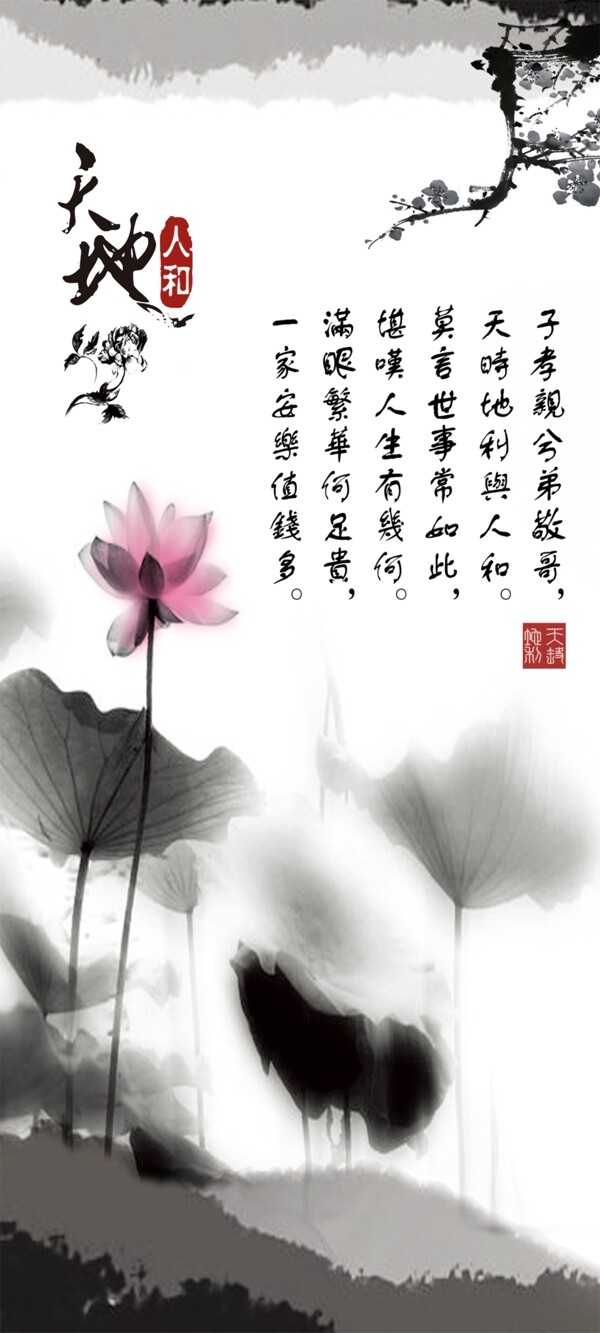 天地
人和
子孝親兮弟敬哥，
天時地利與人和。
莫言世事常如此，
堪嘆人生有幾何。
滿眼繁華何足貴，
一家安樂值錢多。